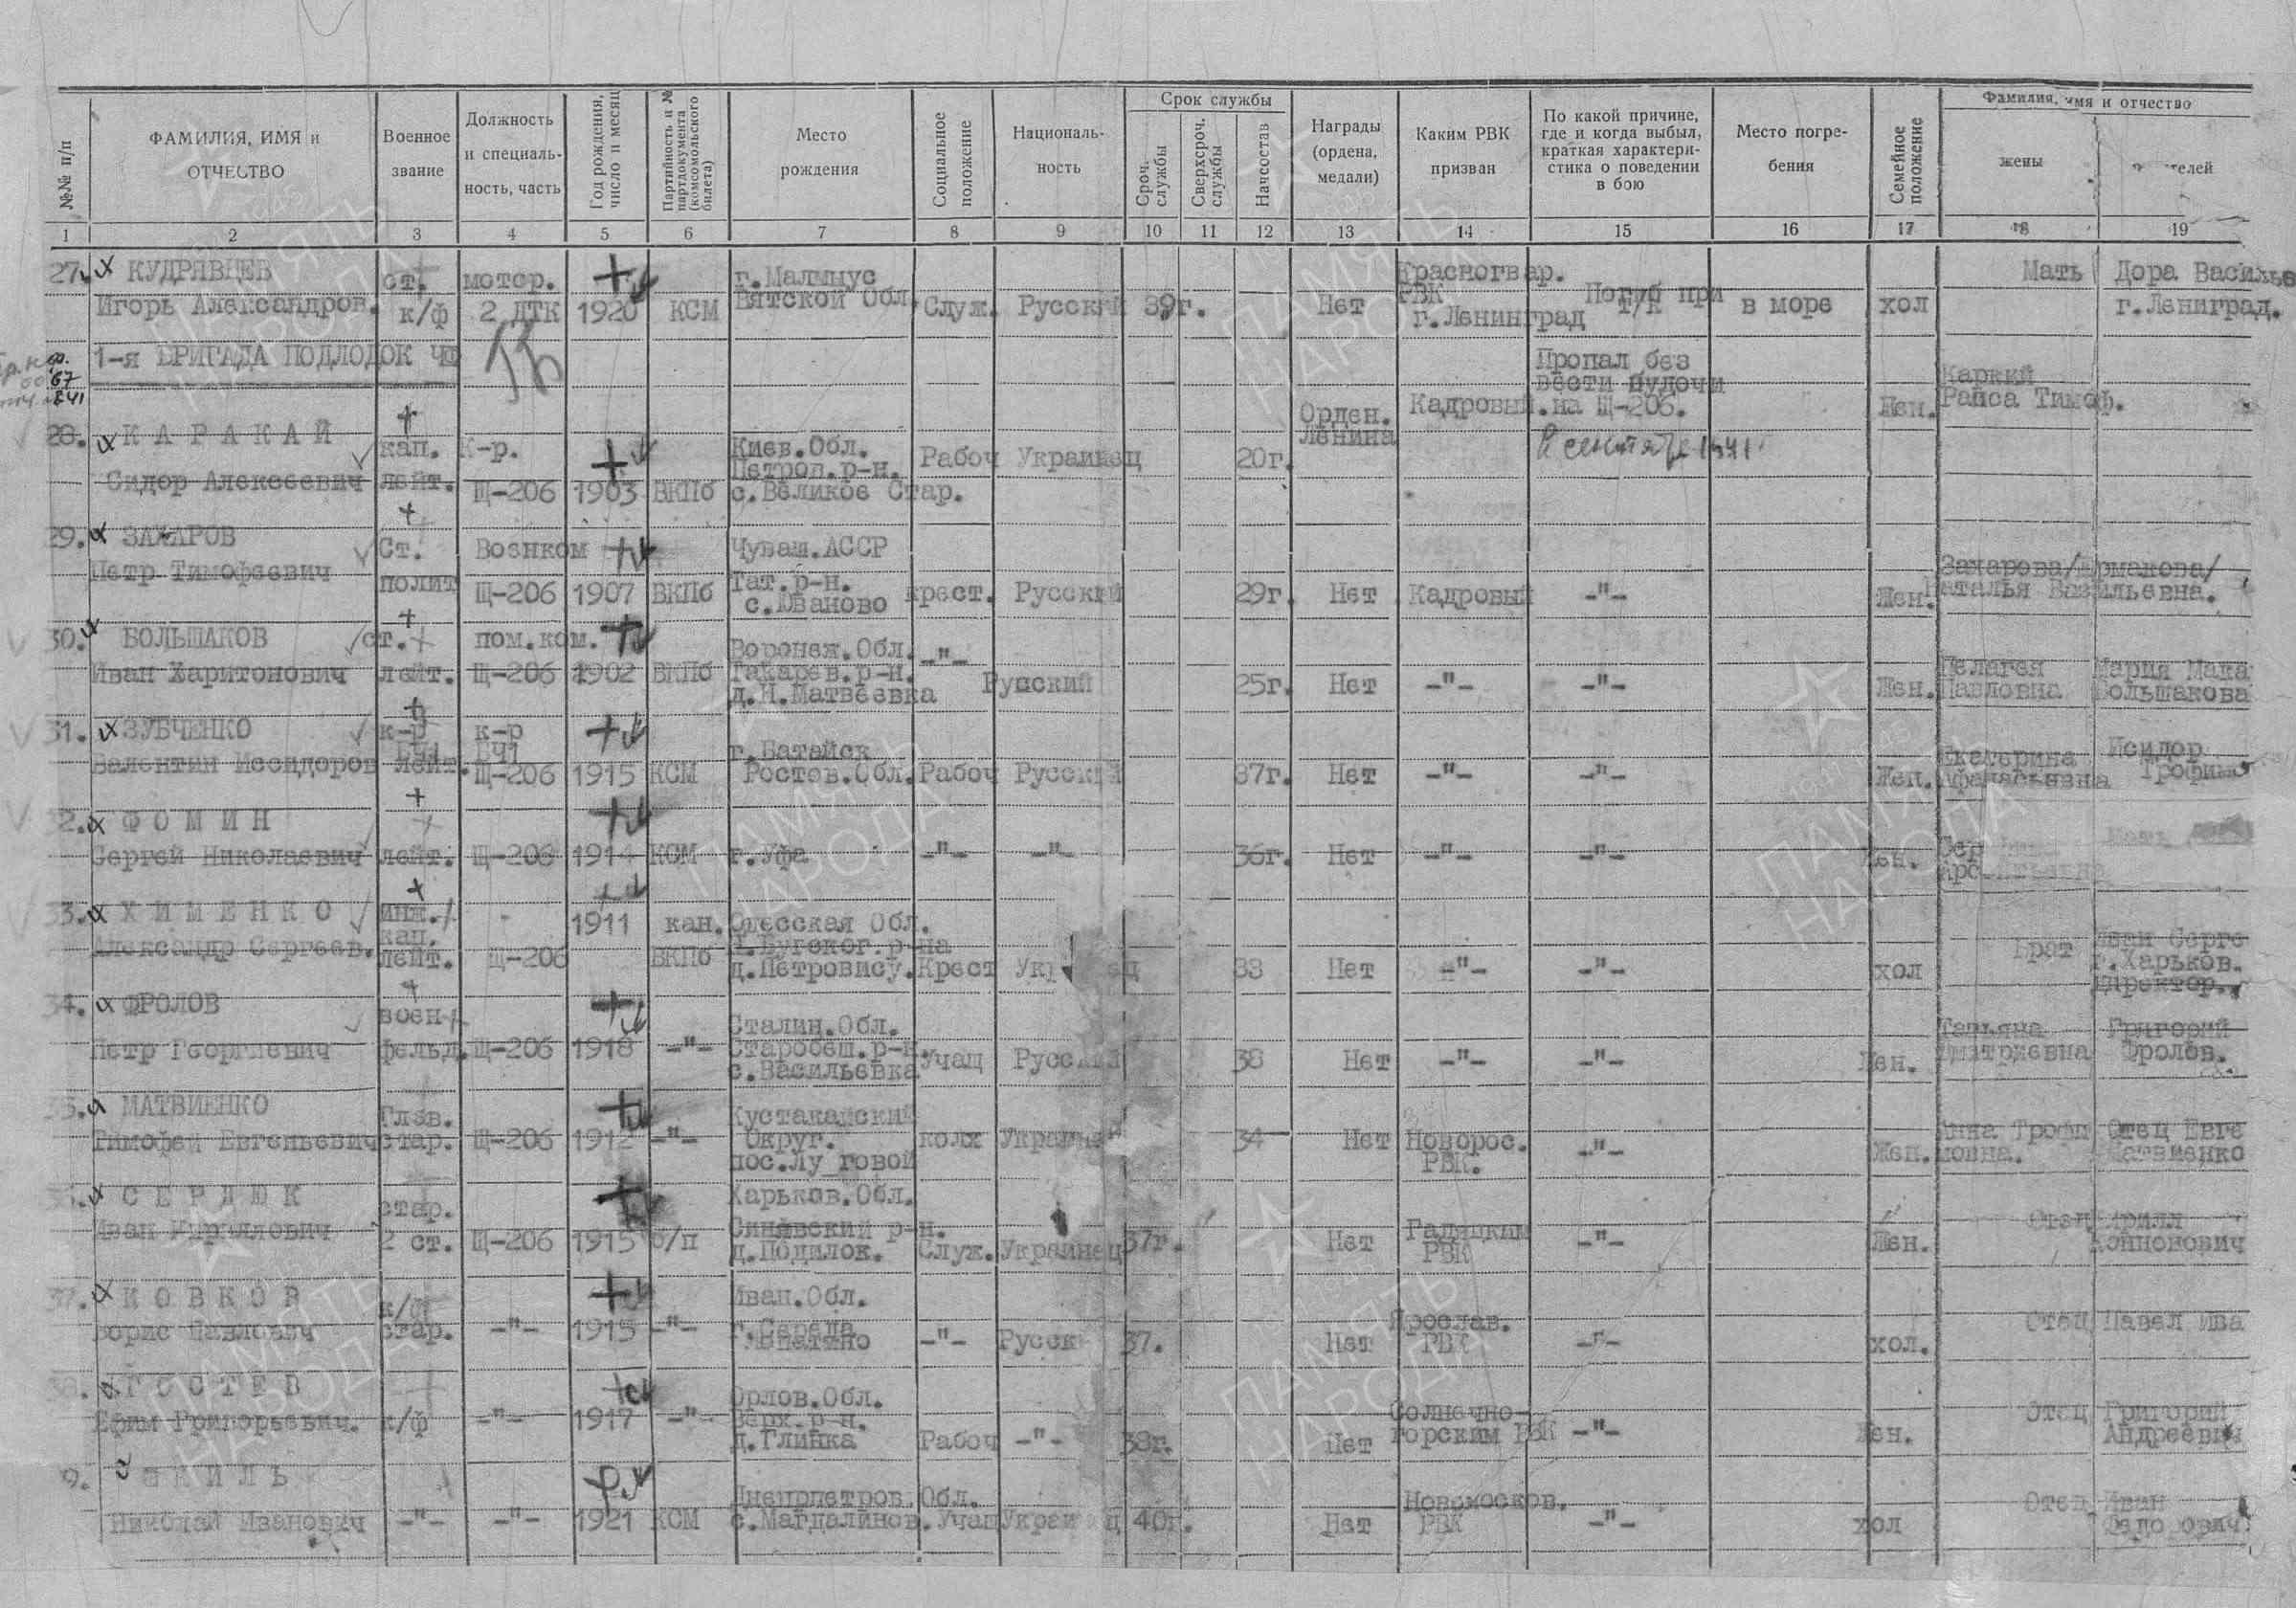 №№ п/п
ФАМИЛИЯ, ИМЯ и ОТЧЕСТВО
Военное звание
Должность и специаль-ность, часть
Год рождения, число и месяц
Партийность и № партдокумента (комсомольского билета)
Место рождения
Социальное положение
Националь-ность
Срок службы
Сроч. службы
Сверхсроч. службы
Начсостав
Награды (ордена, медали)
Каким РВК призван
По какой причине, где и когда выбыл, краткая характери-стика о поведении в бою
Место погре-бения
Семейное положение
Фамилия, имя и отчество
жены
1 2 3 4 5 6 7 8 9 10 11 12 13 14 15 16 17 18 19
27. КУДРЯВЦЕВ ст. мотор. г.Малмнус Красногвар. Мать Дора Василье
Игорь Александров. к/ф 2 ДТК 1920 КСМ Вятской Обл. Служ. Русский 39г. Нет РВК г.Ленинград Погиб при Г/К в море хол г.Лениград.
1-я БРИГАДА ПОДЛОДОК ЧФ
Пропал без вести будочи на Щ-206.
В сентябре 1941
28. КАРАКАЙ кап. К-р. Киев.Обл. Орден. Ленина Кадровый. Жен. Раиса Тимоф.
Сидор Алексеевич лейт. Щ-206 1903 ВКПб Петров.р-н. с.Великое Стар. Рабоч Украинец 20г.
29. ЗАХАРОВ Ст. Военком Чуваш.АССР
Петр Тимофеевич полит Щ-206 1907 ВКПб Тат.р-н. с.Юваново крест. Русский 29г. Нет Кадровый -"- Жен. Захарова/Ермакова/ Наталья Васильевна.
30. БОЛЬШАКОВ ст. пом.ком. Воронеж.Обл. -"-
Иван Харитонович лейт. Щ-206 1902 ВКПб Такарев.р-н. д.Н.Матвеевка Русский 25г. Нет -"- -"- Жен. Пелагея Павловна Мария Мака Большакова
31. ЗУБЧЕНКО к-р БЧ1 к-р БЧ1 г.Батайск
Валентин Иссидоров лейт. Щ-206 1915 КСМ Ростов.Обл. Рабоч Русский 37г. Нет -"- -"- Жен. Екатерина Афанасьевна Исидор Трофим
32. ФОМИН
Сергей Николаевич лейт. Щ-206 1914 КСМ г.Уфа -"- -"- 36г. Нет -"- -"- Жен.
33. ХИМЕНКО инж. 1911 кан. Одесская Обл.
Александр Сергеев. кап. лейт. Щ-206 ВКПб д.Петровису. Крест 33 Нет -"- -"- хол Брат г.Харьков. Директор.
34. ФРОЛОВ воен
Петр Георгиевич фельд. Щ-206 1918 -"- Сталин.Обл. Старобеш.р-н. с.Васильевка Учащ Русский 38 Нет -"- -"- Жен. Татьяна Дмитриевна Григорий Фролов.
35. МАТВИЕНКО Глав.
Тимофей Евгеньевич стар. Щ-206 1912 -"- Кустанайский Округ. пос.Лу говой колх Украинец 34 Нет Новорос. РВК. -"- Жен. Анна Трофи мовна. Отец Евге Матвиенко
СЕРДЮК стар.
Иван Кириллович 2 ст. Щ-206 1915 б/п Харьков.Обл. Синявский р-н. д.Подилок. Служ. Украинец 37г. Нет Галяцким РВК -"- Жен. Отец Кирилл
37. КОВКОВ к/ф Иван.Обл.
Борис Павлович стар. -"- 1915 -"- г.Середа -"- Русск 37. Нет Ярослав. РВК -"- хол. Отец Павел Ива
ГОСТЕВ
Ефим Григорьевич. к/ф -"- 1917 -"- Орлов.Обл. Верх.р-н. д.Глинка Рабоч -"- 38г. Нет Солнечно-горским РВК -"- Жен. Отец Григорий Андреевич
9.
Николай Иванович -"- -"- 1921 КСМ Днепрпетров.Обл. с.Магдалинов. Учащ Украинец 40г. Нет Новомосков. РВК -"- хол Отец Иван Федорович
ПАМЯТЬ НАРОДА